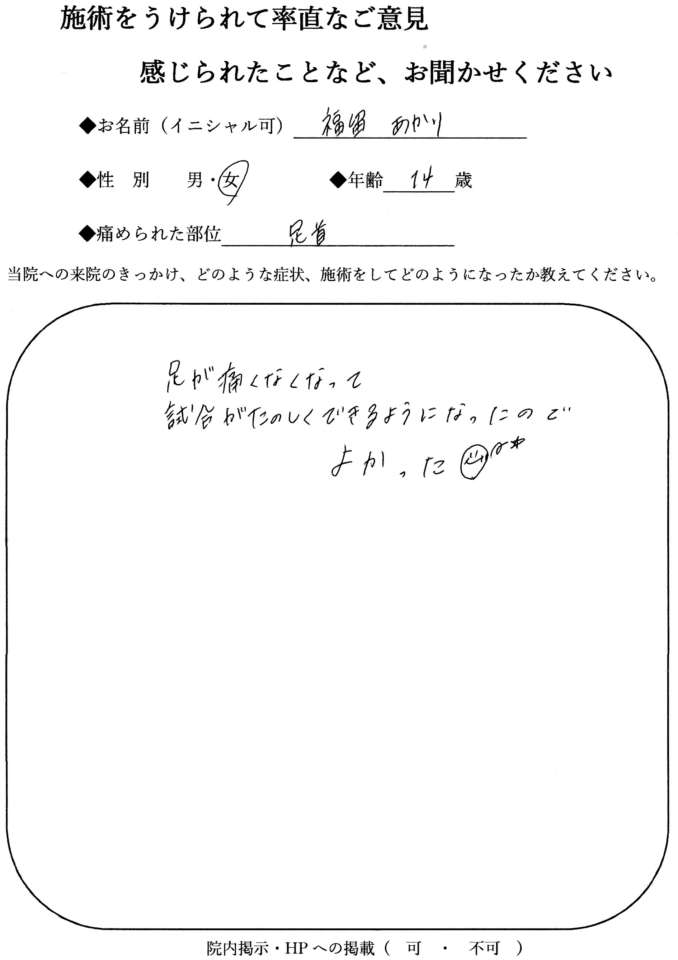 施術をうけられて率直なご意見
感じられたことなど、お聞かせください
◆お名前（イニシャル可） 福留 あかり
◆性 別 男・女 ◆年齢 14 歳
◆痛められた部位 足首
当院への来院のきっかけ、どのような症状、施術をしてどのようになったか教えてください。
足が痛くなくなって
試合がたのしくできるようになったので
よかった
院内掲示・HPへの掲載（ 可 ・ 不可 ）